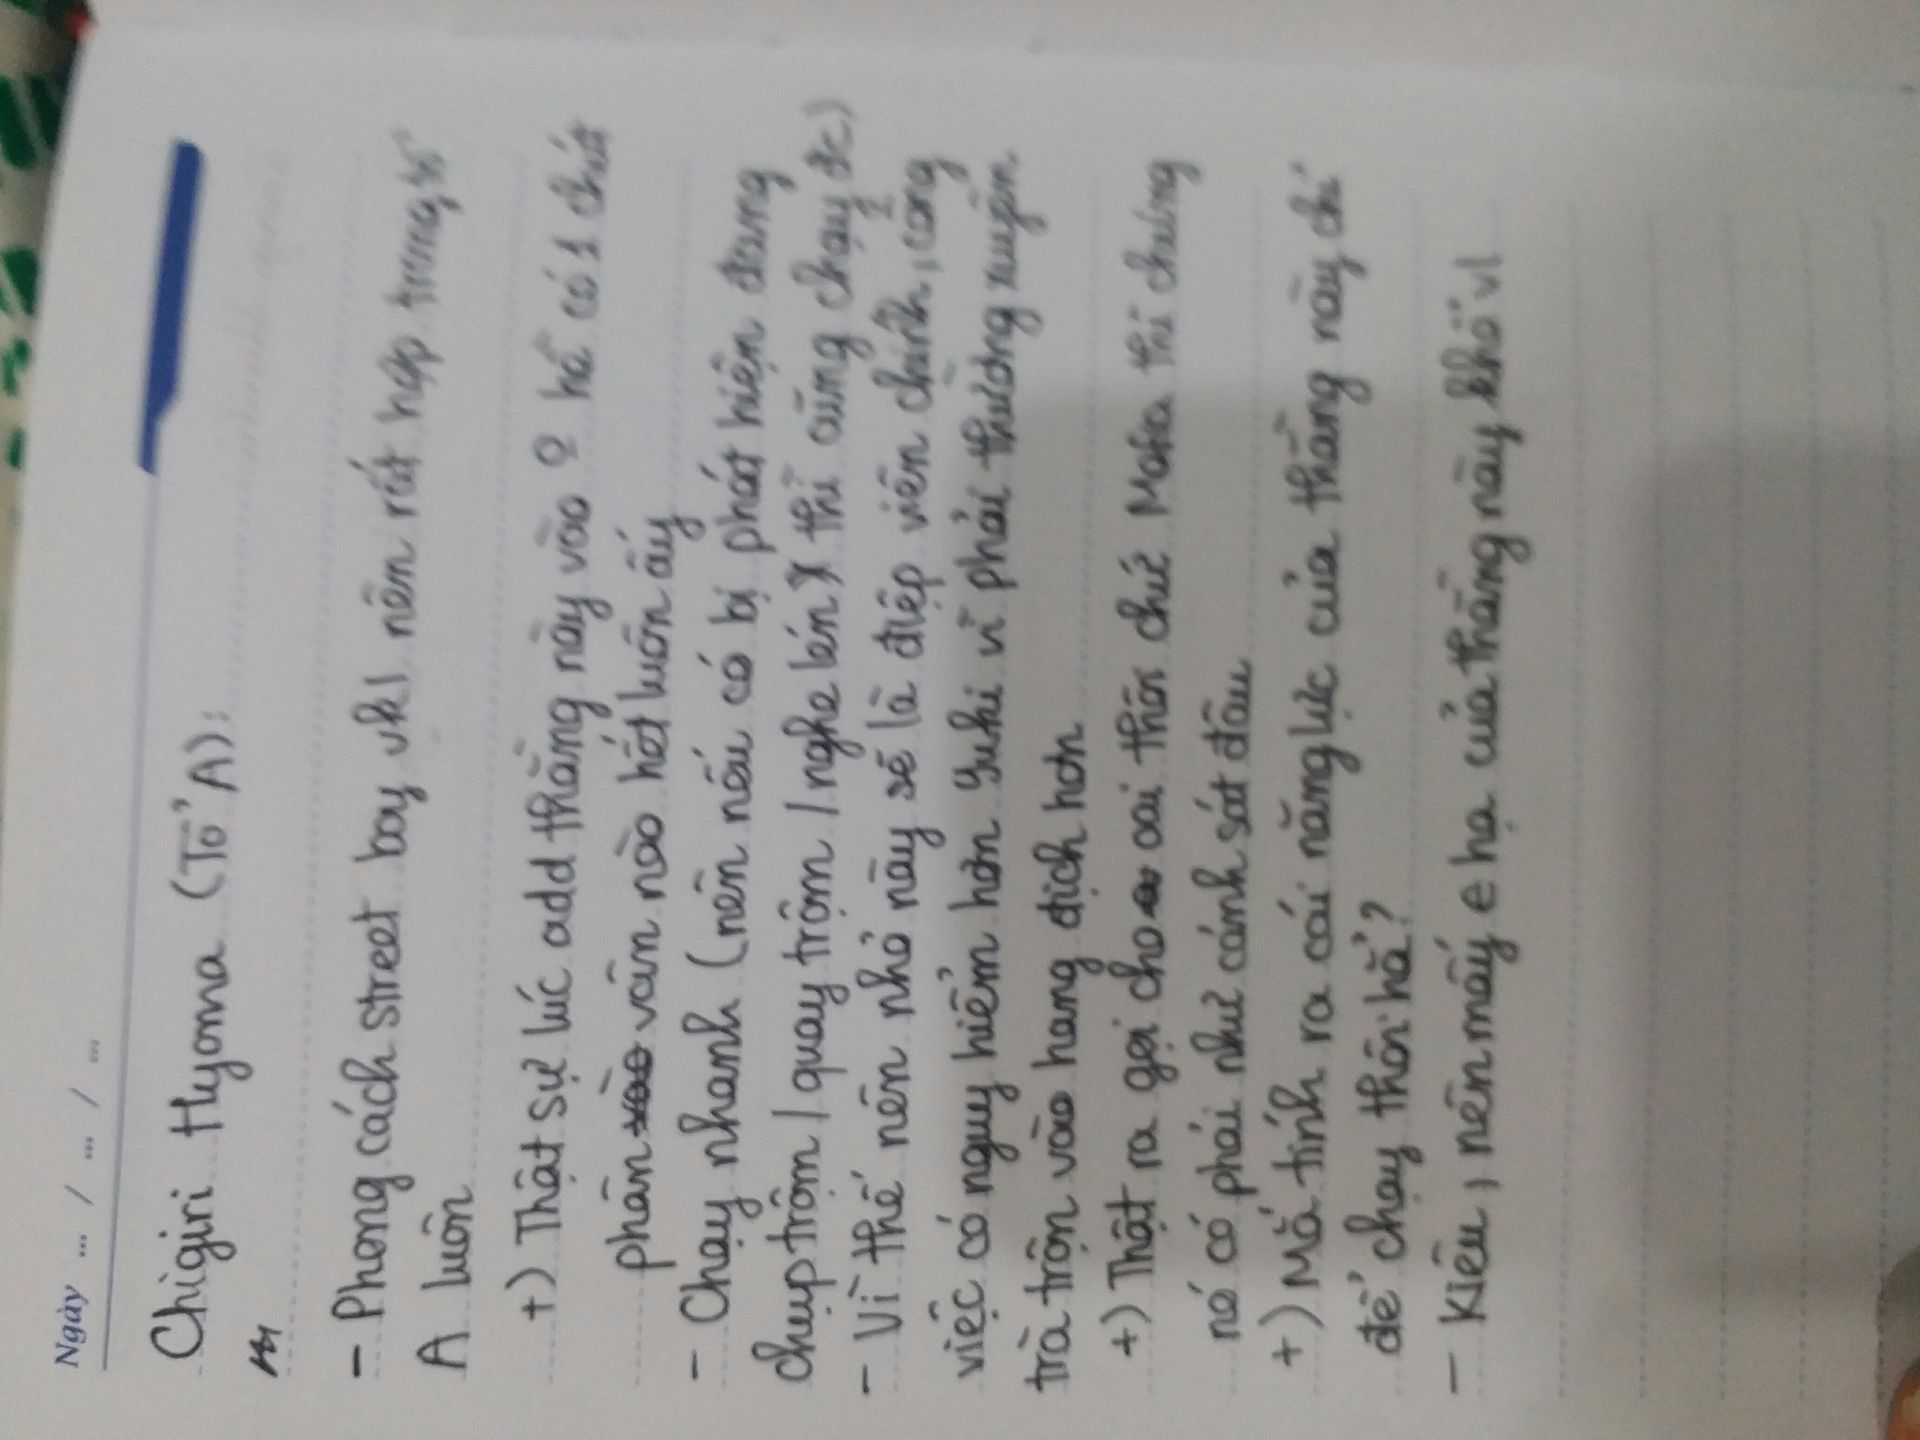 Ngày ... / ... / ...
Chigiri Hyoma (Tổ A):
- Phong cách street boy vkl nên rất hợp trong tổ
A luôn
+) Thật sự lúc add thằng này vào 0 hề có 1 chút
phân vân nào hết luôn ấy
- Chạy nhanh (nên nếu có bị phát hiện đang
chụp trộm / quay trộm / nghe lén) thì cũng chạy đc)
- Vì thế nên nhỏ này sẽ là điệp viên chính, công
việc có nguy hiểm hơn Yuki vì phải thường xuyên
trà trộn vào hang địch hơn
+) Thật ra gọi cho oai thôi chứ Mafia thì chúng
nó có phải như cảnh sát đâu
+) Mả tính ra cái năng lực của thằng này chỉ
để chạy thôi hả?
- Kiêu, nên mấy e hạ của thằng này khổ vl